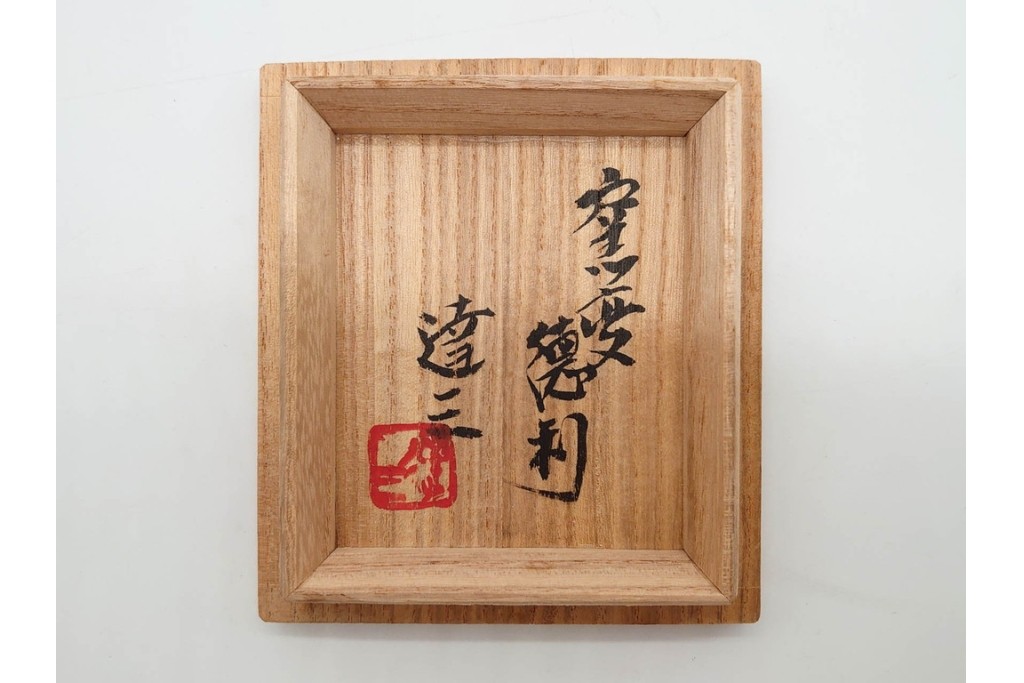 窯変
徳利
達三